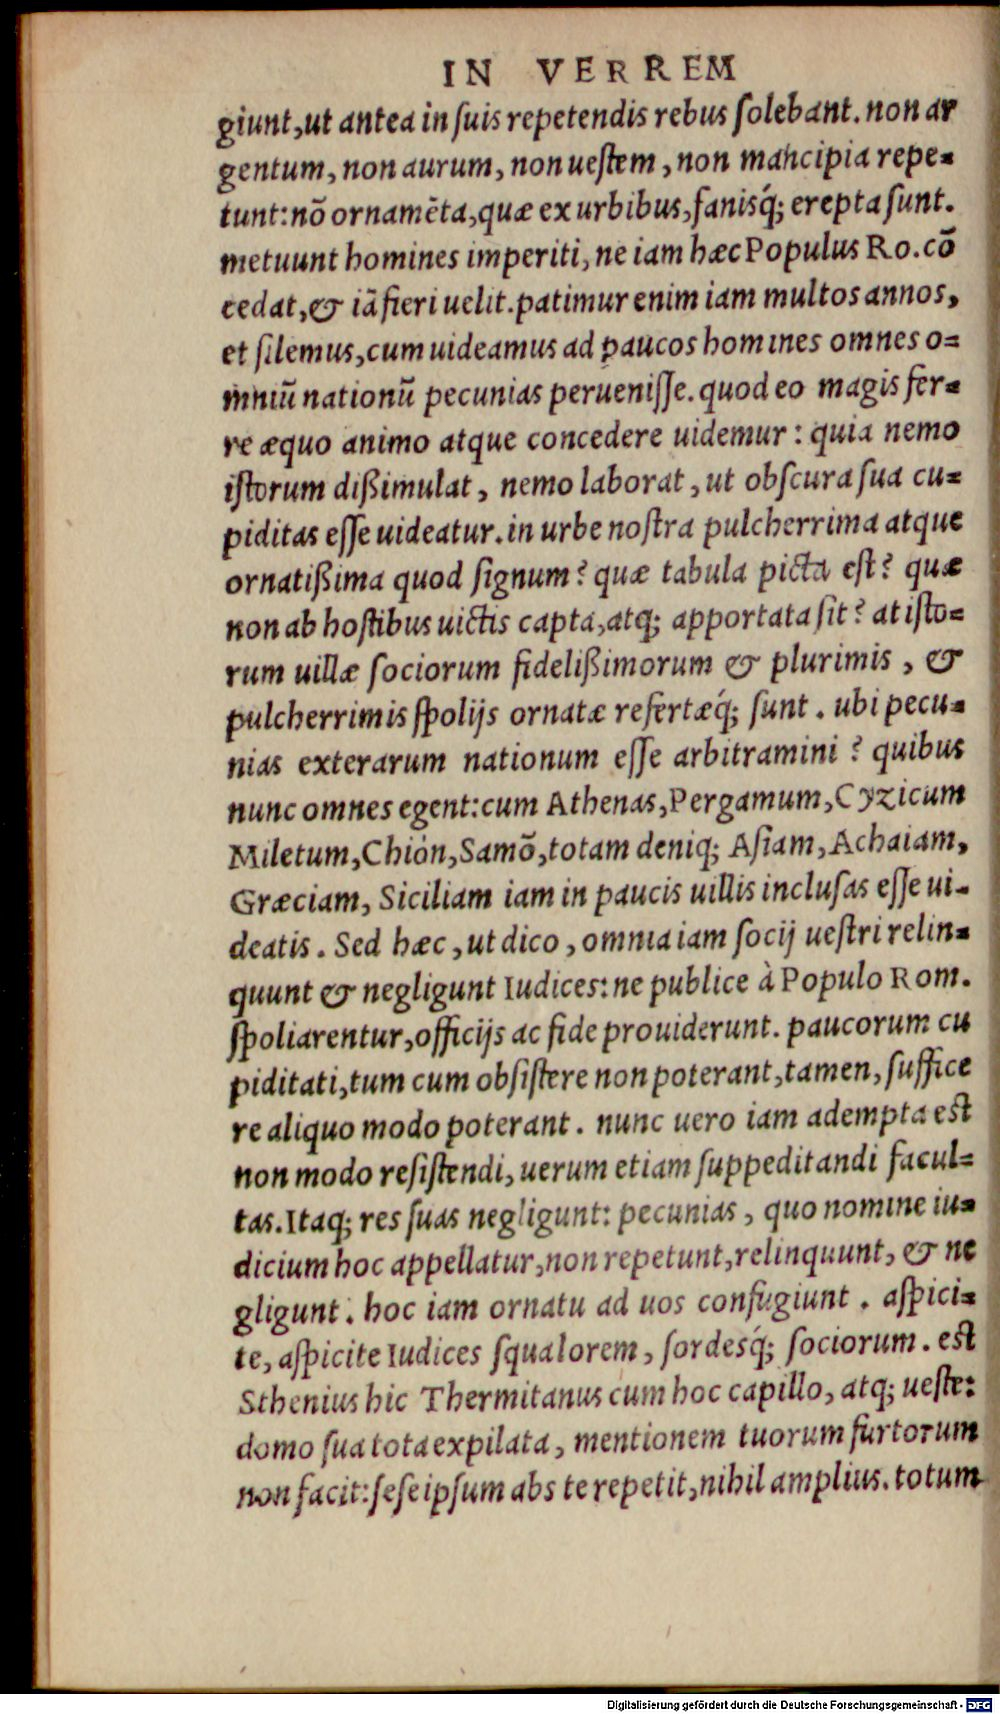 IN VERREM
giunt,ut antea in ſuis repetendis rebus ſolebant. non ar
gentum, non aurum, non ueſtem, non mancipia repe-
tunt: nō ornamēta, quæ ex urbibus, faniſq́; erepta ſunt.
metuunt homines imperiti, ne iam hæc Populus Ro. cō
cedat, & iā fieri uelit. patimur enim iam multos annos,
et ſilemus, cum uideamus ad paucos homines omnes o-
mniū nationū pecunias perueniſſe. quod eo magis fer-
re æquo animo atque concedere uidemur: quia nemo
iſtorum dißimulat, nemo laborat, ut obſcura ſua cu-
piditas eſſe uideatur. in urbe noſtra pulcherrima atque
ornatißima quod ſignum? quæ tabula picta eſt? quæ
non ab hoſtibus uictis capta, atq; apportata ſit? at iſto-
rum uillæ ſociorum fidelißimorum & plurimis, &
pulcherrimis ſpolijs ornatæ refertæq́; ſunt. ubi pecu-
nias exterarum nationum eſſe arbitramini? quibus
nunc omnes egent: cum Athenas, Pergamum, Cyzicum
Miletum, Chion, Samō, totam deniq; Aſiam, Achaiam,
Græciam, Siciliam iam in paucis uillis incluſas eſſe ui-
deatis. Sed hæc, ut dico, omnia iam ſocij ueſtri relin-
quunt & negligunt Iudices: ne publice à Populo Rom.
ſpoliarentur, officijs ac fide prouiderunt. paucorum cu
piditati, tum cum obſiſtere non poterant, tamen, ſuffice
re aliquo modo poterant. nunc uero iam adempta eſt
non modo reſiſtendi, uerum etiam ſuppeditandi facul-
tas. Itaq; res ſuas negligunt: pecunias, quo nomine iu-
dicium hoc appellatur, non repetunt, relinquunt, & ne
gligunt. hoc iam ornatu ad uos confugiunt. aſpici-
te, aſpicite Iudices ſqualorem, ſordeſq́; ſociorum. eſt
Sthenius hic Thermitanus cum hoc capillo, atq; ueſte:
domo ſua tota expilata, mentionem tuorum furtorum
non facit: ſeſe ipſum abs te repetit, nihil amplius. totum
Digitalisierung gefördert durch die Deutsche Forschungsgemeinschaft - DFG